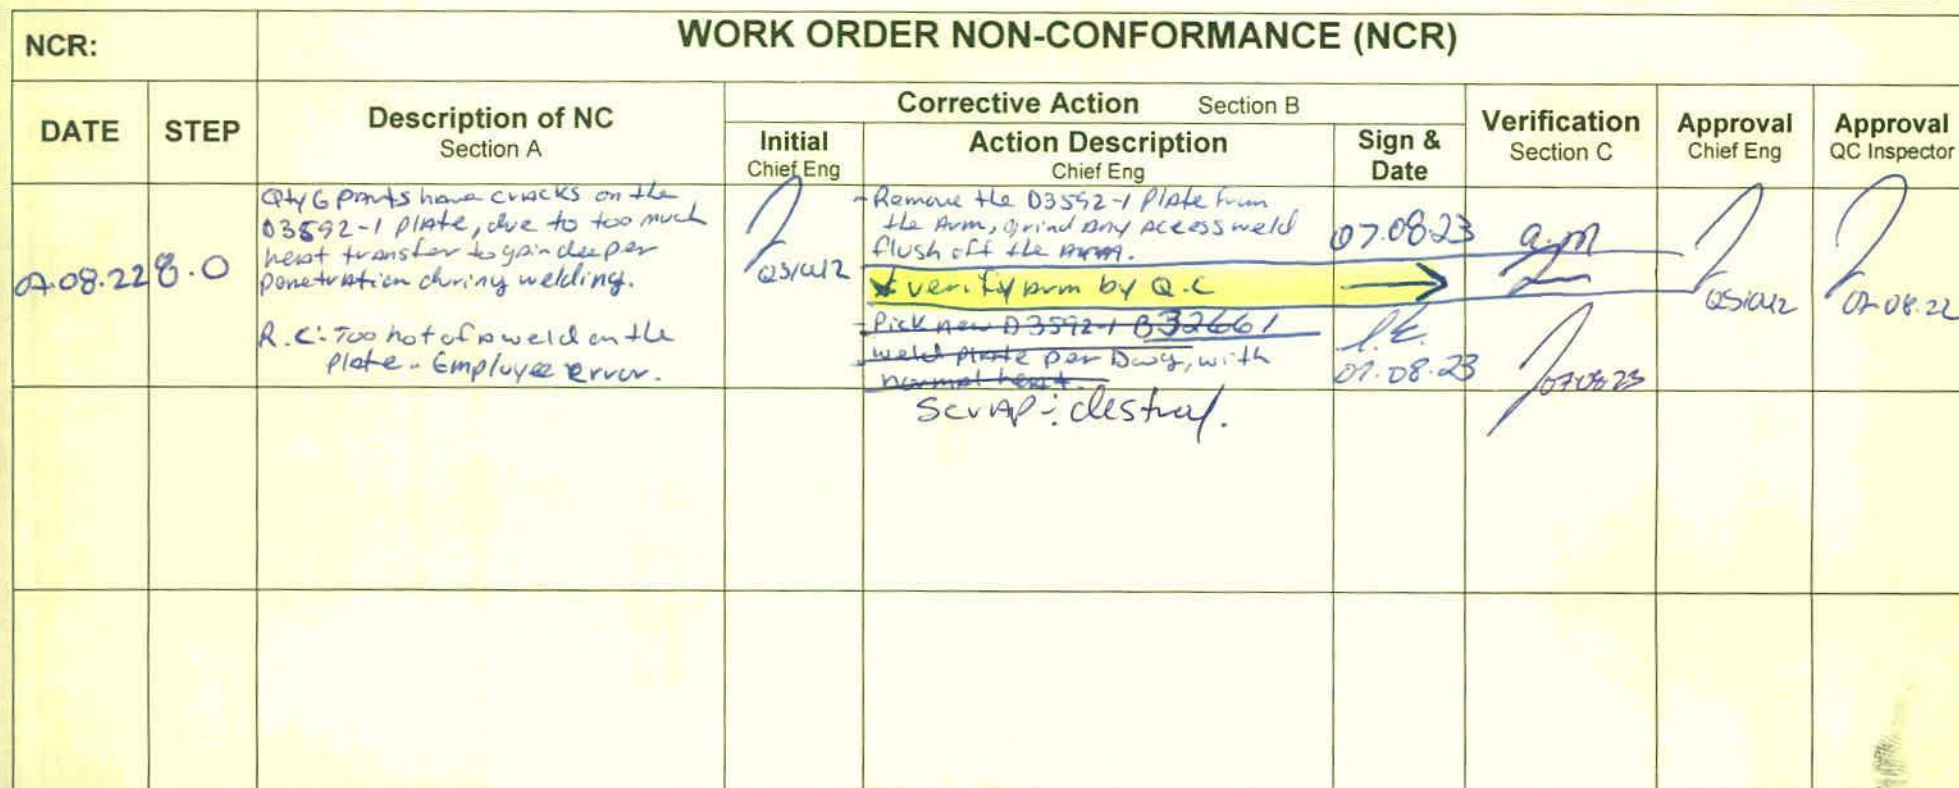 NCR:
WORK ORDER NON-CONFORMANCE (NCR)
DATE
STEP
Description of NC
Section A
Corrective Action Section B
Initial
Chief Eng
Action Description
Chief Eng
Sign &
Date
Verification
Section C
Approval
Chief Eng
Approval
QC Inspector
07.08.22
8.0
Qty 6 parts have cracks on the
D3592-1 plate, due to too much
heat transfer to gain deeper
penetration during welding.
R.C: Too hot of a weld on the
plate - Employee error.
- Remove the D3592-1 Plate from
the Arm, grind any access weld
flush off the Arm.
verify arm by Q.C
- Pick new D3592-1 B32661
weld plate per Dwg, with
normal heat.
Scrap
07.08.23
a.m
07.08.23
07.08.23
07.08.22